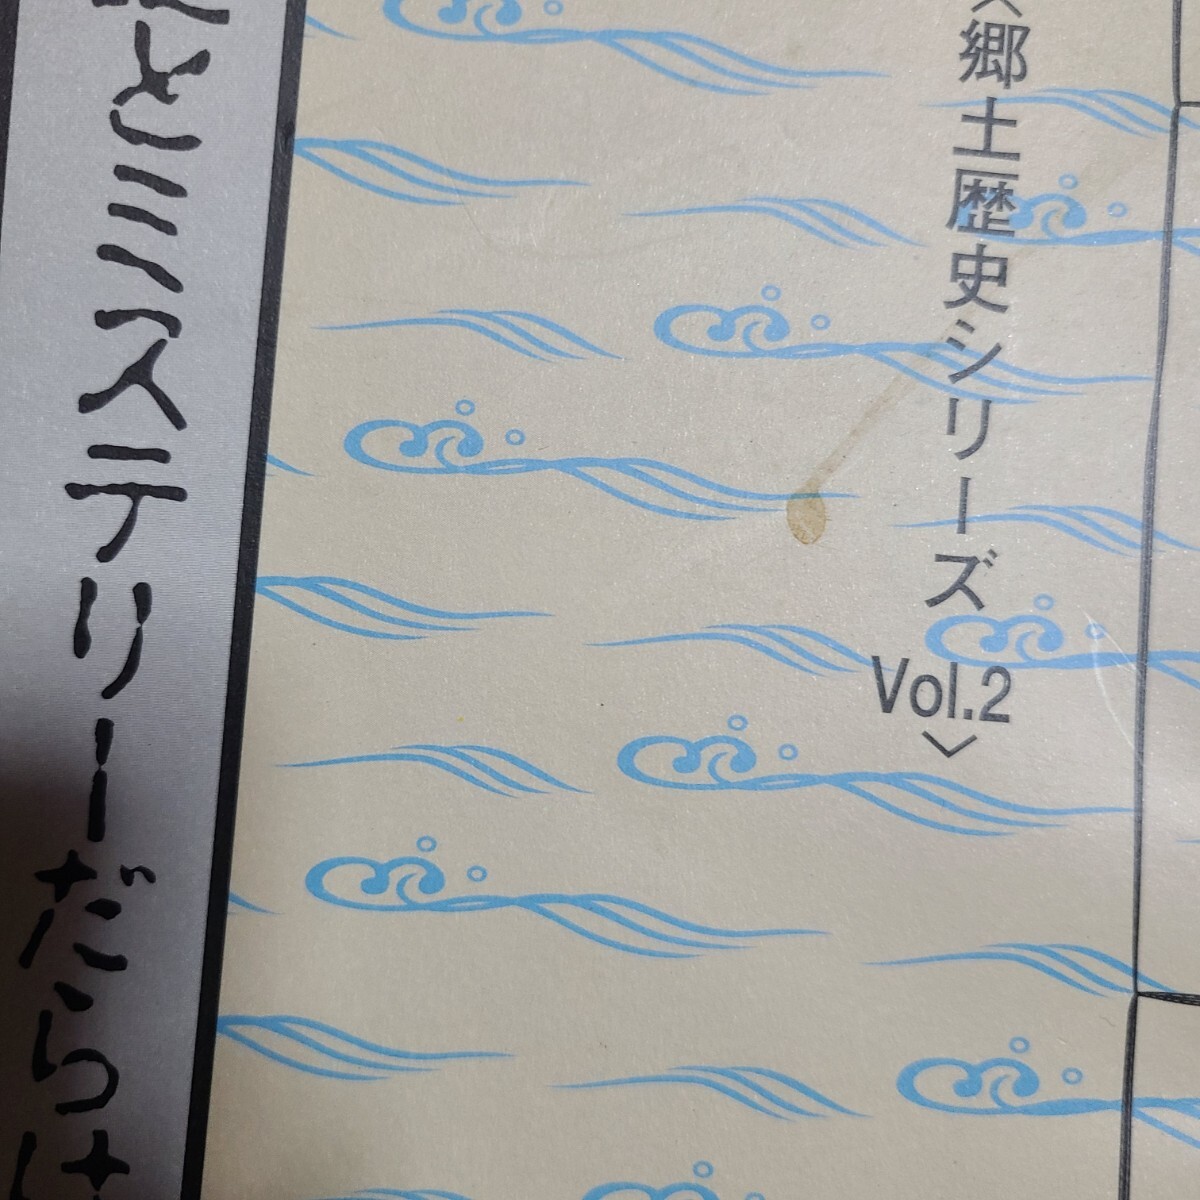 〈郷土歴史シリーズ Vol.2〉
とミステリーだらけ